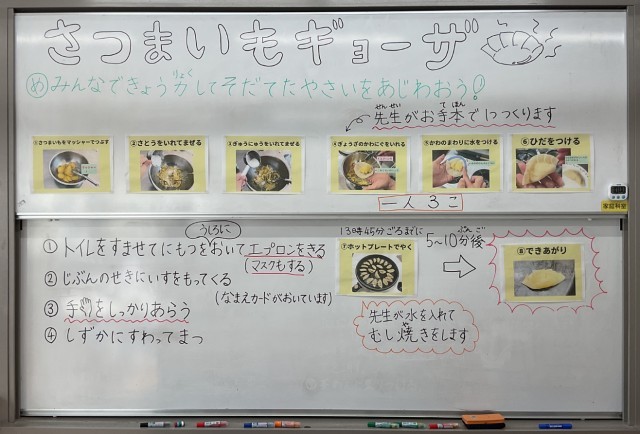 さつまいもギョーザ
めみんなできょう力してそだてたやさいをあじわおう!
りょく
せんせい て ほん
先生がお手本で1つつくります
①さつまいもをマッシャーでつぶす
②さとうをいれてまぜる
③ぎゅうにゅうをいれてまぜる
④ぎょうざのかわにぐをいれる
⑤かわのまわりに水をつける
⑥ひだをつける
一人3こ
家庭科室
うしろに
①トイレをすませてにもつをおいてエプロンをきる
(マスクもする)
②じぶんのせきにいすをもってくる
(なまえカードがおいています)
③手をしっかりあらう
④しずかにすわってまつ
13時45分ごろまでに
⑦ホットプレートでやく
ぷん ご
5~10分後
⑧できあがり
先生が水を入れて
むし焼きをします